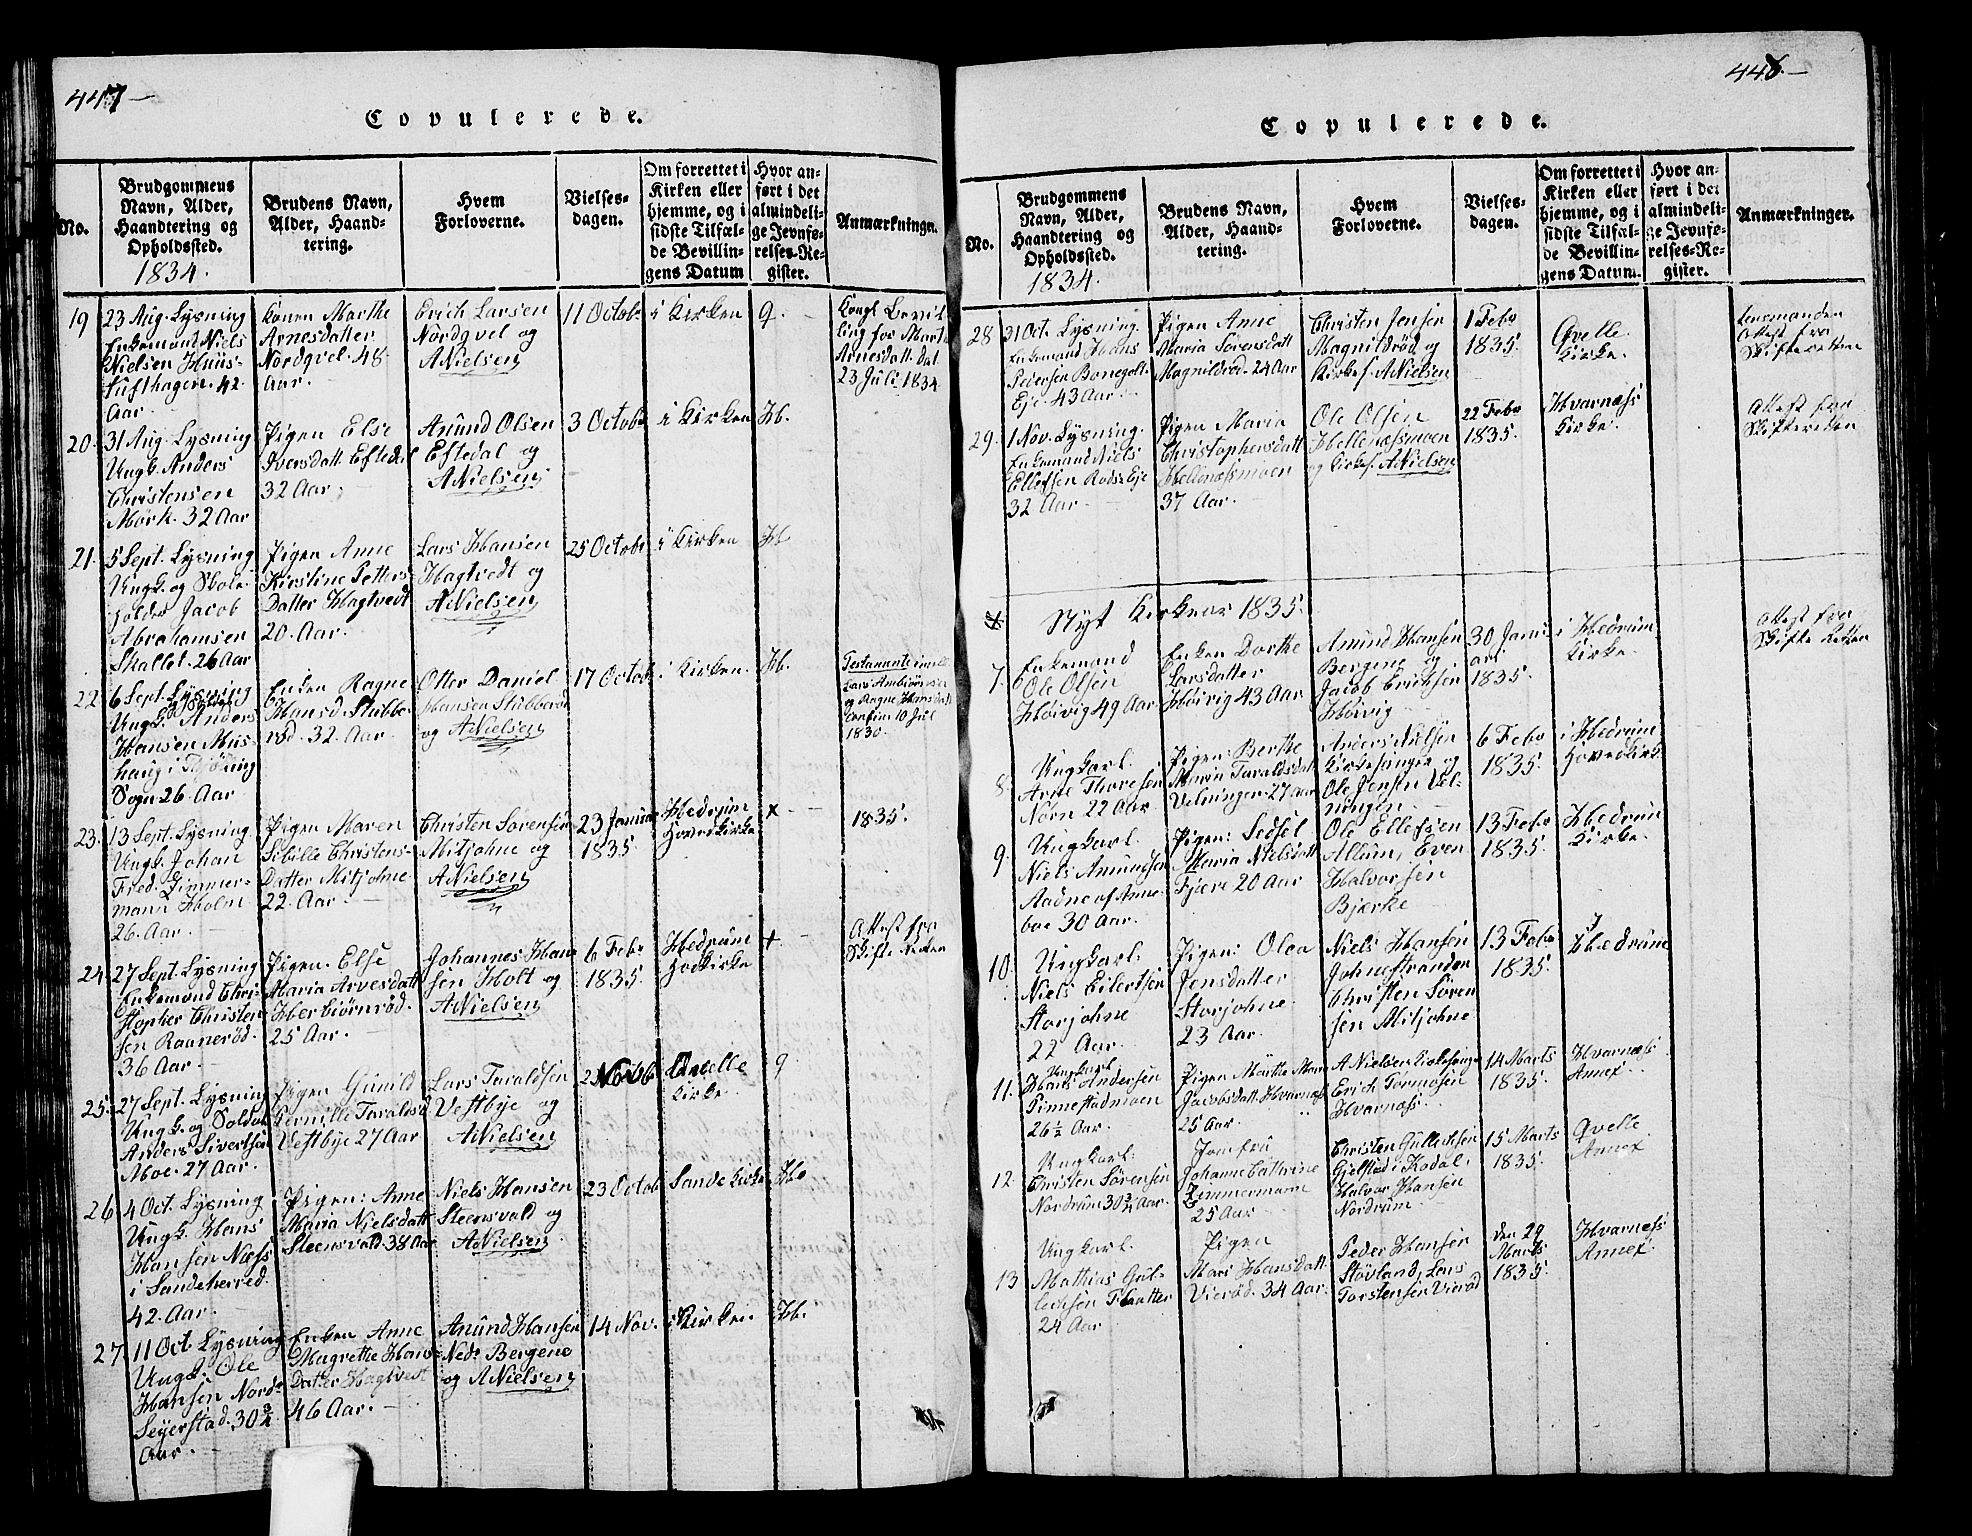 447
Copulerede.
No.
Brudgommens
Navn, Alder,
Haandtering og
Opholdssted.
1834.
Brudens Navn,
Alder, Haand-
tering.
Hvem
Forloverne.
Vielses-
dagen.
Om forrettet i
Kirken eller
hjemme, og i
sidste Tilfæl-
de Bevillin-
gens Datum
Hvor an-
ført i det
almindeli-
ge Jevnfø-
relses-Re-
gister.
Anmærkninger.
19
23 Aug. Lysning
Enkemand Niels
Nielsen
42
Aar
Konen Marthe
Arnesdatter
Nordqvel 48
Aar.
Erich Larsen
Nordqvel og
ANielsen
11 Octob
i Kirken
9.
Kongl Bevil
ling for Marth
Arnesdatt. dat
23 Juli 1834
20.
31 Aug. Lysning
Ungk. Anders
Christensen
Mørk. 32 Aar
Pigen Else
Iversdatt. Eftedal
32 Aar
Amund Olsen
Eftedal og
ANielsen
3 Octob
i Kirken
Hb.
21.
5 Sept. Lysning
Ungk. og Skole-
holder Jacob
Abrahamsen
Skallet. 26 Aar
Pigen Anne
Kirstine Petters
Datter Hagtvedt
20. Aar.
Lars Hansen
Hagtvedt og
ANielsen
25 Octob
i Kirken
Hb
22
6 Sept. Lysning
Ungk. Anders
Hansen Mus-
haug i Thjølling
Sogn 26 Aar
Enken Ragne
Hansd. Stubbe-
rød. 32. Aar.
Otter Daniel
Hansen Stubberød
og ANielsen
17 Octob
i Kirken.
Hb.
Lars Ambiørnsen
og Ragne Hansdatt
confim 10 Jul
1830.
23.
13 Sept. Lysning
Ungk. Johan
Fred. Zimmer-
mann Holm
26. Aar.
Pigen Maren
Sibille Christens-
Datter Mitjohne
22. Aar.
Christen Sørensen
Mitjohne og
ANielsen
23 Janua
1835
Hedrum
Hovedkirke
x
1835.
24
27 Sept. Lysning
Enkemand Chri-
stopher Christen-
sen Raanerød.
36 Aar.
Pigen. Else
Maria Arvesdatt
Herbiørnrød.
25 Aar.
Johannes Han
sen Holt og
ANielsen
6 Febr
1835
Hedrum
Hodkirke
+
Attest fra
Skifte-retten
25.
27 Sept. Lysning
Ungk. og Soldat
Anders Sivertsen
Moe. 27 Aar.
Pigen Gunild
Pernille Taraldsd
Vestbye 27 Aar
Lars Taraldsen
Vestbye og
ANielsen
2 Novb
Qvelle
Kirke.
9
26
4 Oct. Lysning
Ungk. Hans
Hansen Næss
i Sandeherred.
42. Aar.
Pigen: Anne
Maria Nielsdatt
Steensvald 38 Aar
Niels Hansen
Steensvald og
ANielsen
23 Octob
Sande Kirke
Hb
27
11 Oct Lysning
Ungk. Ole
Hansen Nord-
Seyerstad. 30 3/4
Aar.
Enken Anne
Magrethe Hans-
Datter Hagtvedt
46 Aar.
Amund Hansen
Nedr Bergene
og ANielsen
14 Nov.
i Kirken.
Hb.
448
Copulerede.
No.
Brudgommens
Navn, Alder,
Haandtering og
Opholdssted.
1834.
Brudens Navn,
Alder, Haand-
tering.
Hvem
Forloverne.
Vielses-
dagen.
Om forrettet i
Kirken eller
hjemme, og i
sidste Tilfæl-
de Bevillin-
gens Datum.
Hvor an-
ført i det
almindeli-
ge Jevnfø-
relses-Re-
gister.
Anmærkninger.
28
31 Oct. Lysning.
Enkemand Hans
Pedersen Bonegolt
Eje. 43 Aar.
Pigen Anne
Maria Sørensdatt
Magnildrød. 24 Aar
Christen Jensen
Magnildrød og
Kirkes. ANielsen
1 Febr
1835.
Qvelle
Kirke.
Lensmanden
Attest fra
Skifteretten
29.
1 Nov. Lysning.
Enkemand Niels
Ellefsen Røds Eje
32 Aar
Pigen Maria
Christophersdatt
Hellenæssmoen
37 Aar.
Ole Olsen
Hellenæssmoen
og Kirkes. ANielsen
22 Febr
1835.
Hvarnæss
Kirke.
Attest fra
Skifteretten
Nyt Kirkeaar 1835.
7.
Enkemand
Ole Olsen
Høivig 49 Aar
Enken Dorthe
Larsdatter
Høivig 43 Aar
Amund Hansen
Bergene og
Jacob Ericksen
Høivig
30 Janu
ari
1835.
i Hedrum
Kirke.
Attest fra
Skifte Retten
8
Ungkarl.
Arne Thoresen
Nørn 22 Aar
Pigen: Berthe
Maria Taraldsdatt
Velningen. 27 aar
Anders Nielsen
Kirkesanger og
Ole Jensen Vel-
ningen
6 Febr
1835
i Hedrum
Hovedkirk
9.
Ungkarl.
Niels Amundsen
Aadne af Anne-
boe 30 Aar.
Pigen: Sedsel
Maria Nielsdatt
Fjære 20 Aar
Ole Ellefsen
Allum, Even
Halvorsen
Bjerke
13 Febr
1835.
Hedrum
Kirke.
10.
Ungkarl.
Niels Eilertsen
Storjohne
22 Aar.
Pigen: Olea
Jensdatter
Storjohne.
23 Aar.
Niels Hansen
Johnestranden
Christen Søren
sen Mitjohne
13 Febr
1835.
I
Hedrum
11.
Ungkarl.
Hans Andersen
Pinnestadmoen
26 1/2 Aar.
Pigen Marthe Mar
Jacobsdatt. Hvarnæss
25 Aar.
A Nielsen Kirkesanger
Erich Tormosen
Hvarnæss
14 Marts
1835.
Hvarnæss
Annex.
12.
Ungkarl.
Christen Sørensen
Nordrum 30 3/4 Aar.
Jomfru
Johanne Cathrine
Zimmermann
25 Aar
Christen Gulliksen
Gjelstad i Kodal,
Halvor Hansen
Nordrum
15 Marts
1835.
Qvelle
Annex
13
Ungkarl.
Mathias Gul-
lichsen Flaatter
24 Aar
Pigen
Mari Hansdatt.
Vierød. 34 Aar.
Peder Hansen
Støvland, Lens
Torstensen Vierød
den 29
Marts
1835.
Hvarnæss
Annex.